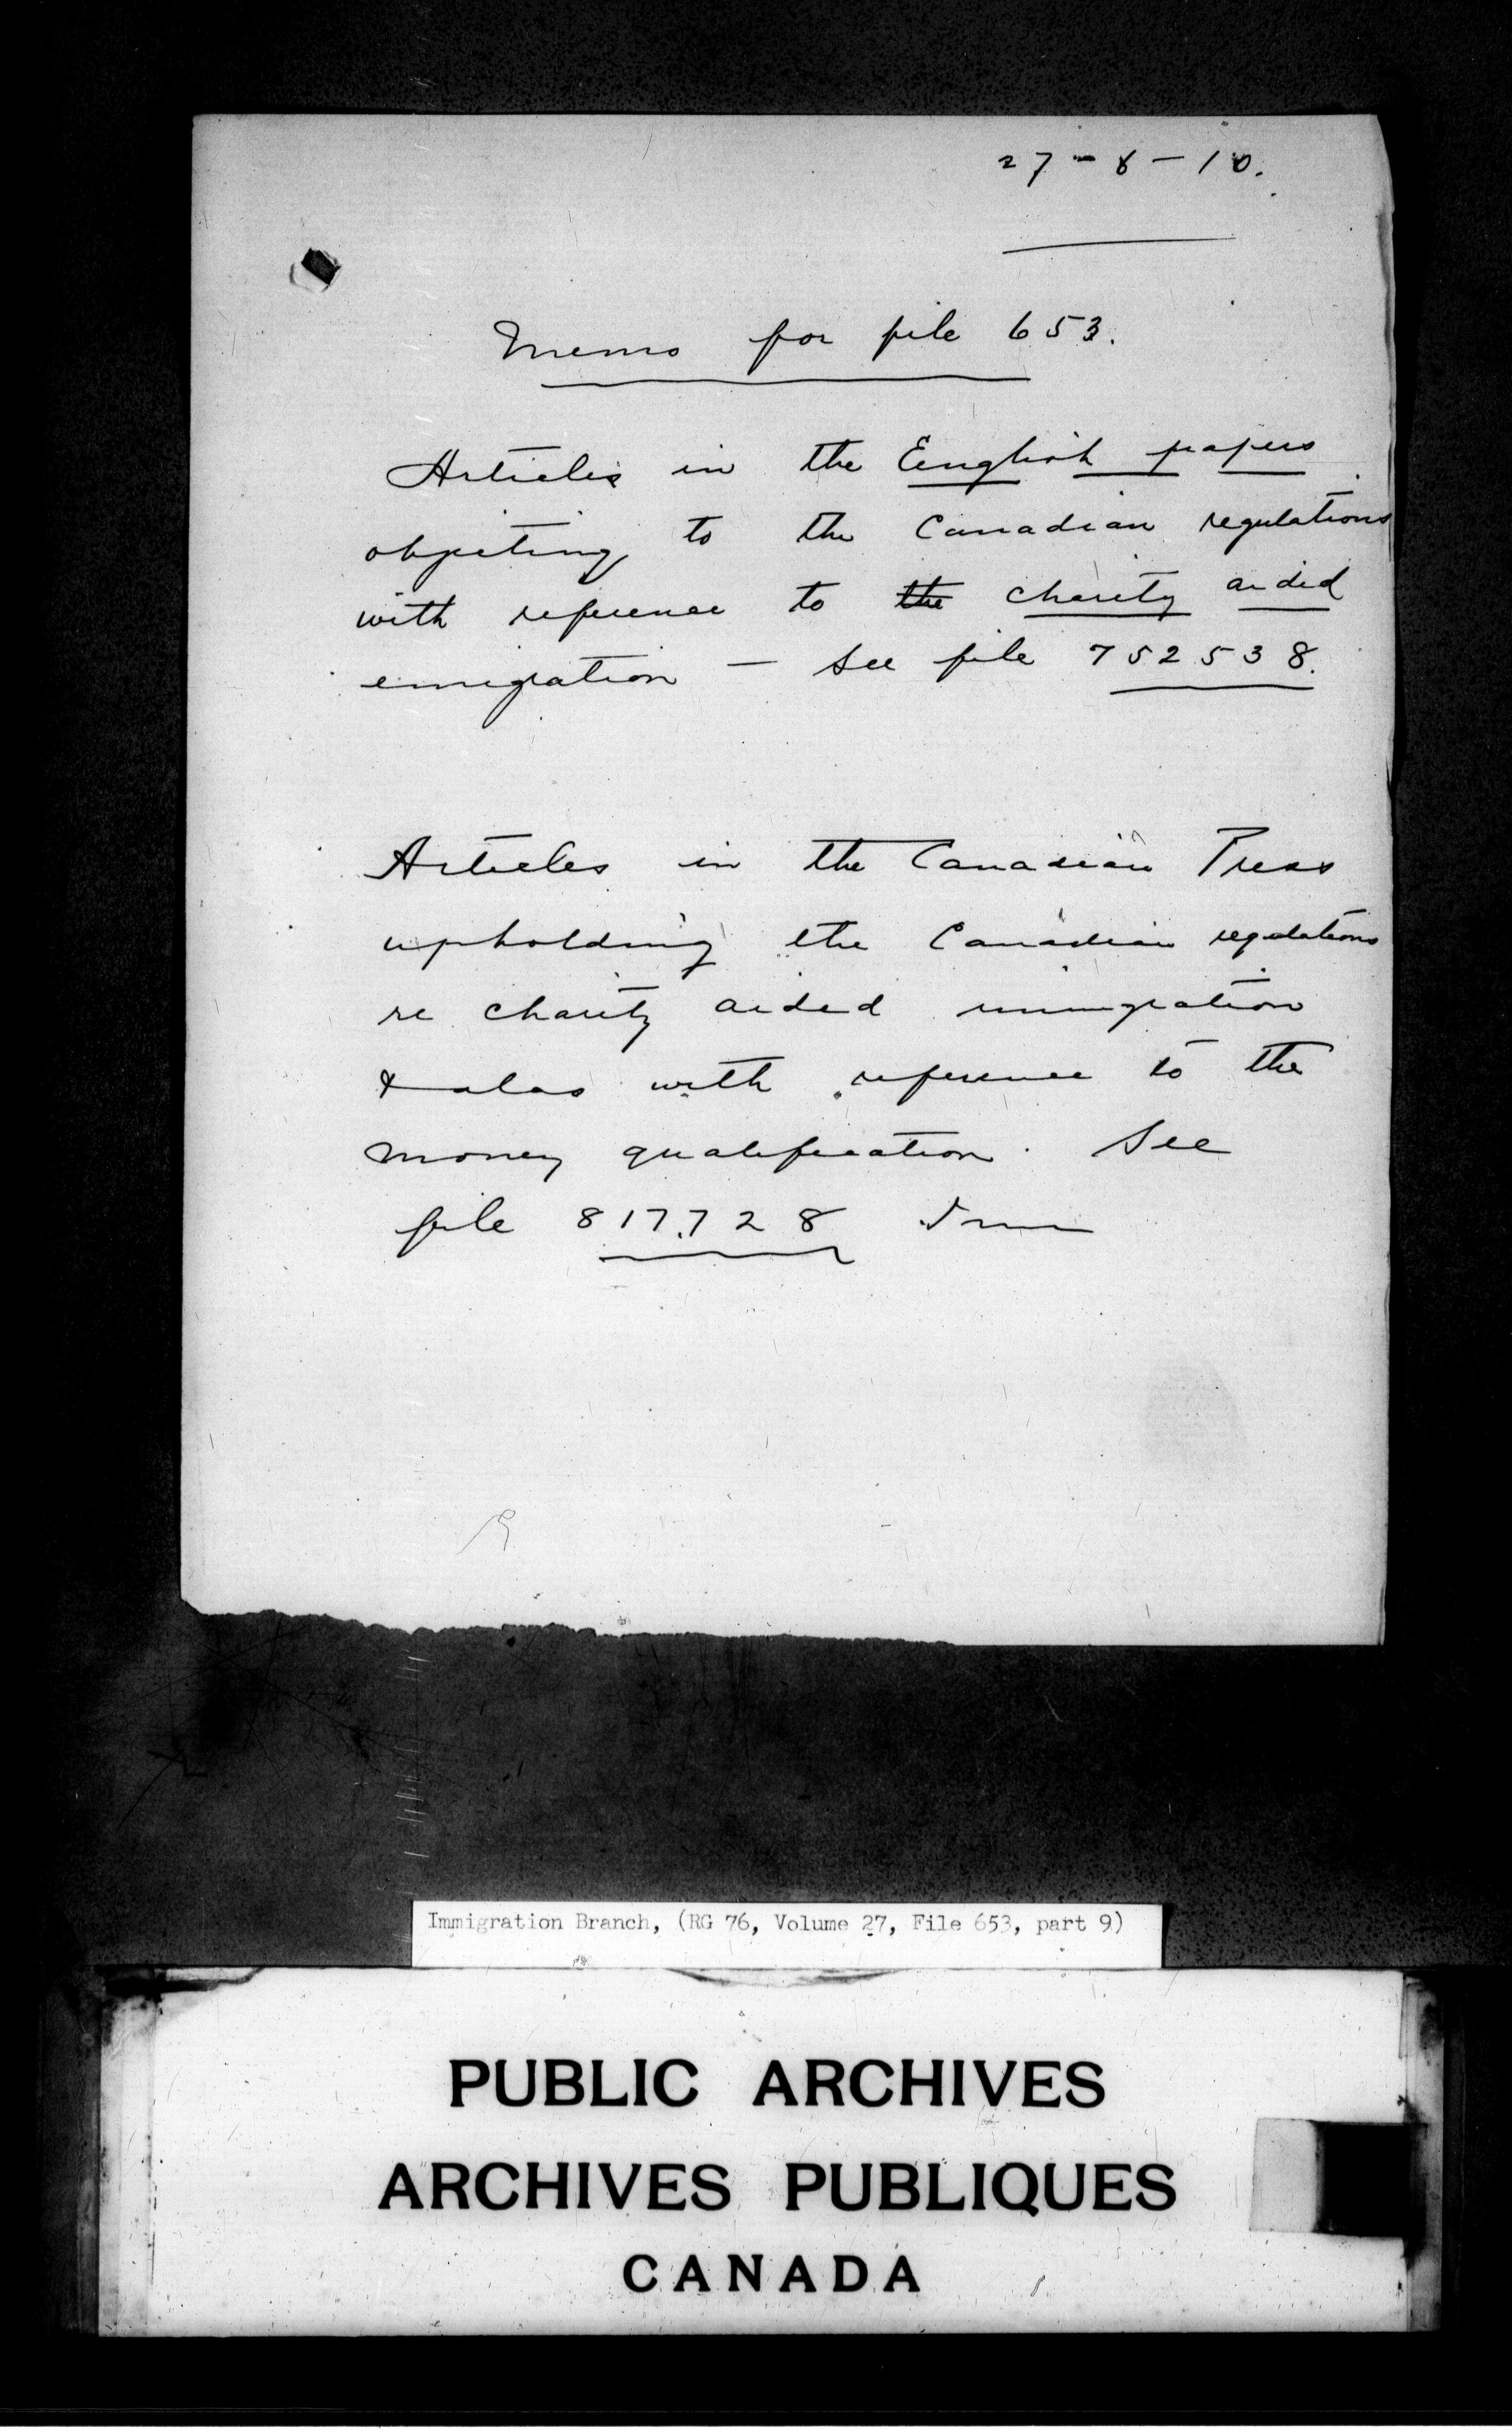 27-8-10.
Memo for file 653.
Articles in the English papers
objecting to the Canadian regulations
with reference to the charity aided
emigration - see file 752538.
Articles in the Canadian Press
upholding the Canadian regulations
re charity aided immigration
& also with reference to the
money qualification. See
file 817728
Immigration Branch, (RG 76, Volume 27, File 653, part 9)
PUBLIC ARCHIVES
ARCHIVES PUBLIQUES
CANADA